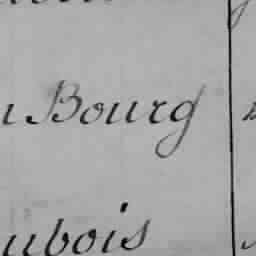 u Bourg
ubois